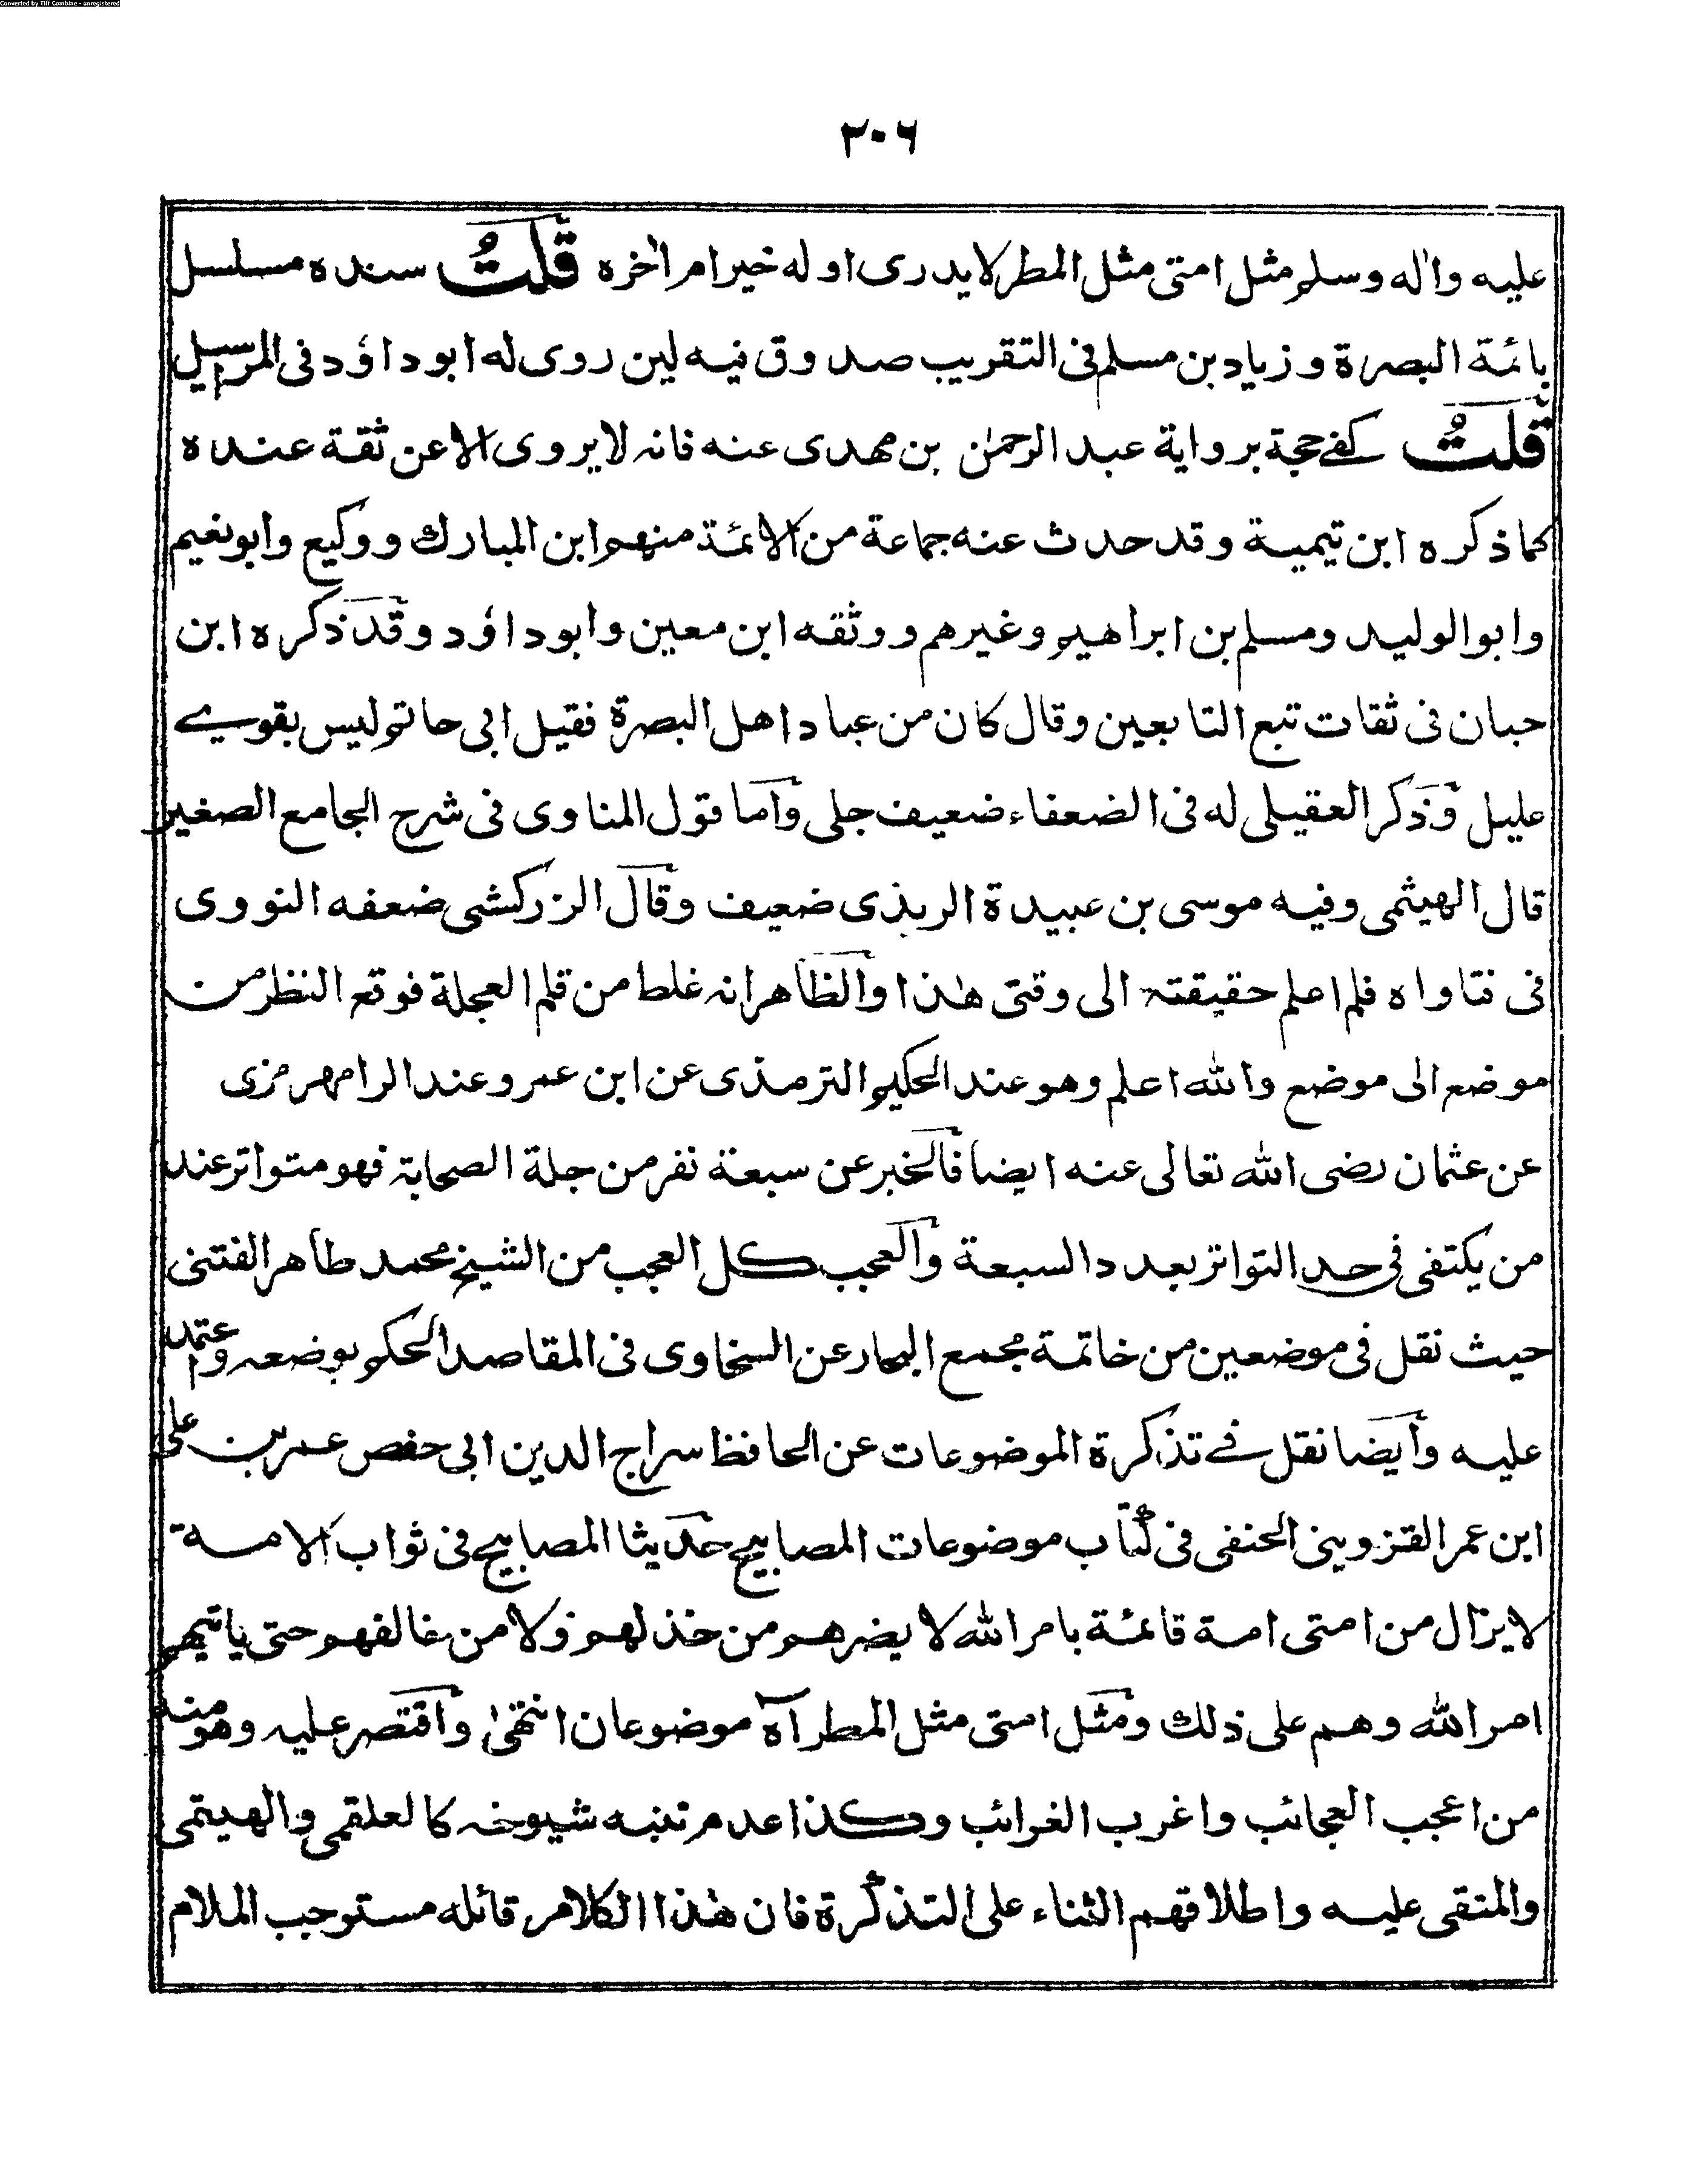 Converted by Tiff Combine - unregistered
٣٠٦
عليه واٰله وسلم مثل امتى مثل المطر لايدرى اوله خير ام اٰخره قلتُ سنده مسلسل
بائمة البصرة وزياد بن مسلم فى التقريب صدوق فيه لين روى له ابوداؤد فى المراسيل
قلتُ كفے حجة برواية عبد الرحمٰن بن مهدى عنه فانه لا يروى الا عن ثقة عنده
كما ذكره ابن تيمية وقد حدث عنه جماعة من الائمة منهم ابن المبارك ووكيع وابونعيم
وابوالوليد ومسلم بن ابراهيم وغيرهم ووثقه ابن معين وابوداؤد وقد ذكره ابن
حبان فى ثقات تبع التابعين وقال كان من عباد اهل البصرة فقيل ابى حاتم ليس بقوے
عليل وذكر العقيلى له فى الضعفاء ضعيف جلى واما قول المناوى فى شرح الجامع الصغير
قال الهيثمى وفيه موسى بن عبيدة الربذى ضعيف وقال الزركشى ضعفه النووى
فى فتاواه فلم اعلم حقيقته الى وقتى هٰذا والظاهر انه غلط من قلم العجلة فوقع النظر من
موضع الى موضع والله اعلم وهو عند الحكيم الترمذى عن ابن عمر وعند الرامهرمزى
عن عثمان رضى الله تعالى عنه ايضا فالخبر عن سبعة نفر من جلة الصحابة فهو متواتر عند
من يكتفى فى حد التواتر بعدد السبعة والعجب كل العجب من الشيخ محمد طاهر الفتنى
حيث نقل فى موضعين من خاتمة مجمع البحار عن السخاوى فى المقاصد الحكم بوضعه واعتمد
عليه وايضا نقل فے تذكرة الموضوعات عن الحافظ سراج الدين ابى حفص عمر بن على
ابن عمر القزوينى الحنفى فى كتاب موضوعات المصابيح حديثا المصابيح فى ثواب الامة
لايزال من امتى امة قائمة بامر الله لا يضرهم من خذلهم ولا من خالفهم حتى ياتيهم
امر الله وهم على ذلك ومثل امتى مثل المطر آه موضوعان انتهىٰ واقتصر عليه وهو منه
من اعجب العجائب واغرب الغرائب وكذا عدم تنبه شيوخه كالعلقمى والهيتمى
والمتقى عليه واطلاقهم الثناء على التذكرة فان هٰذا الكلام قائله مستوجب الملام